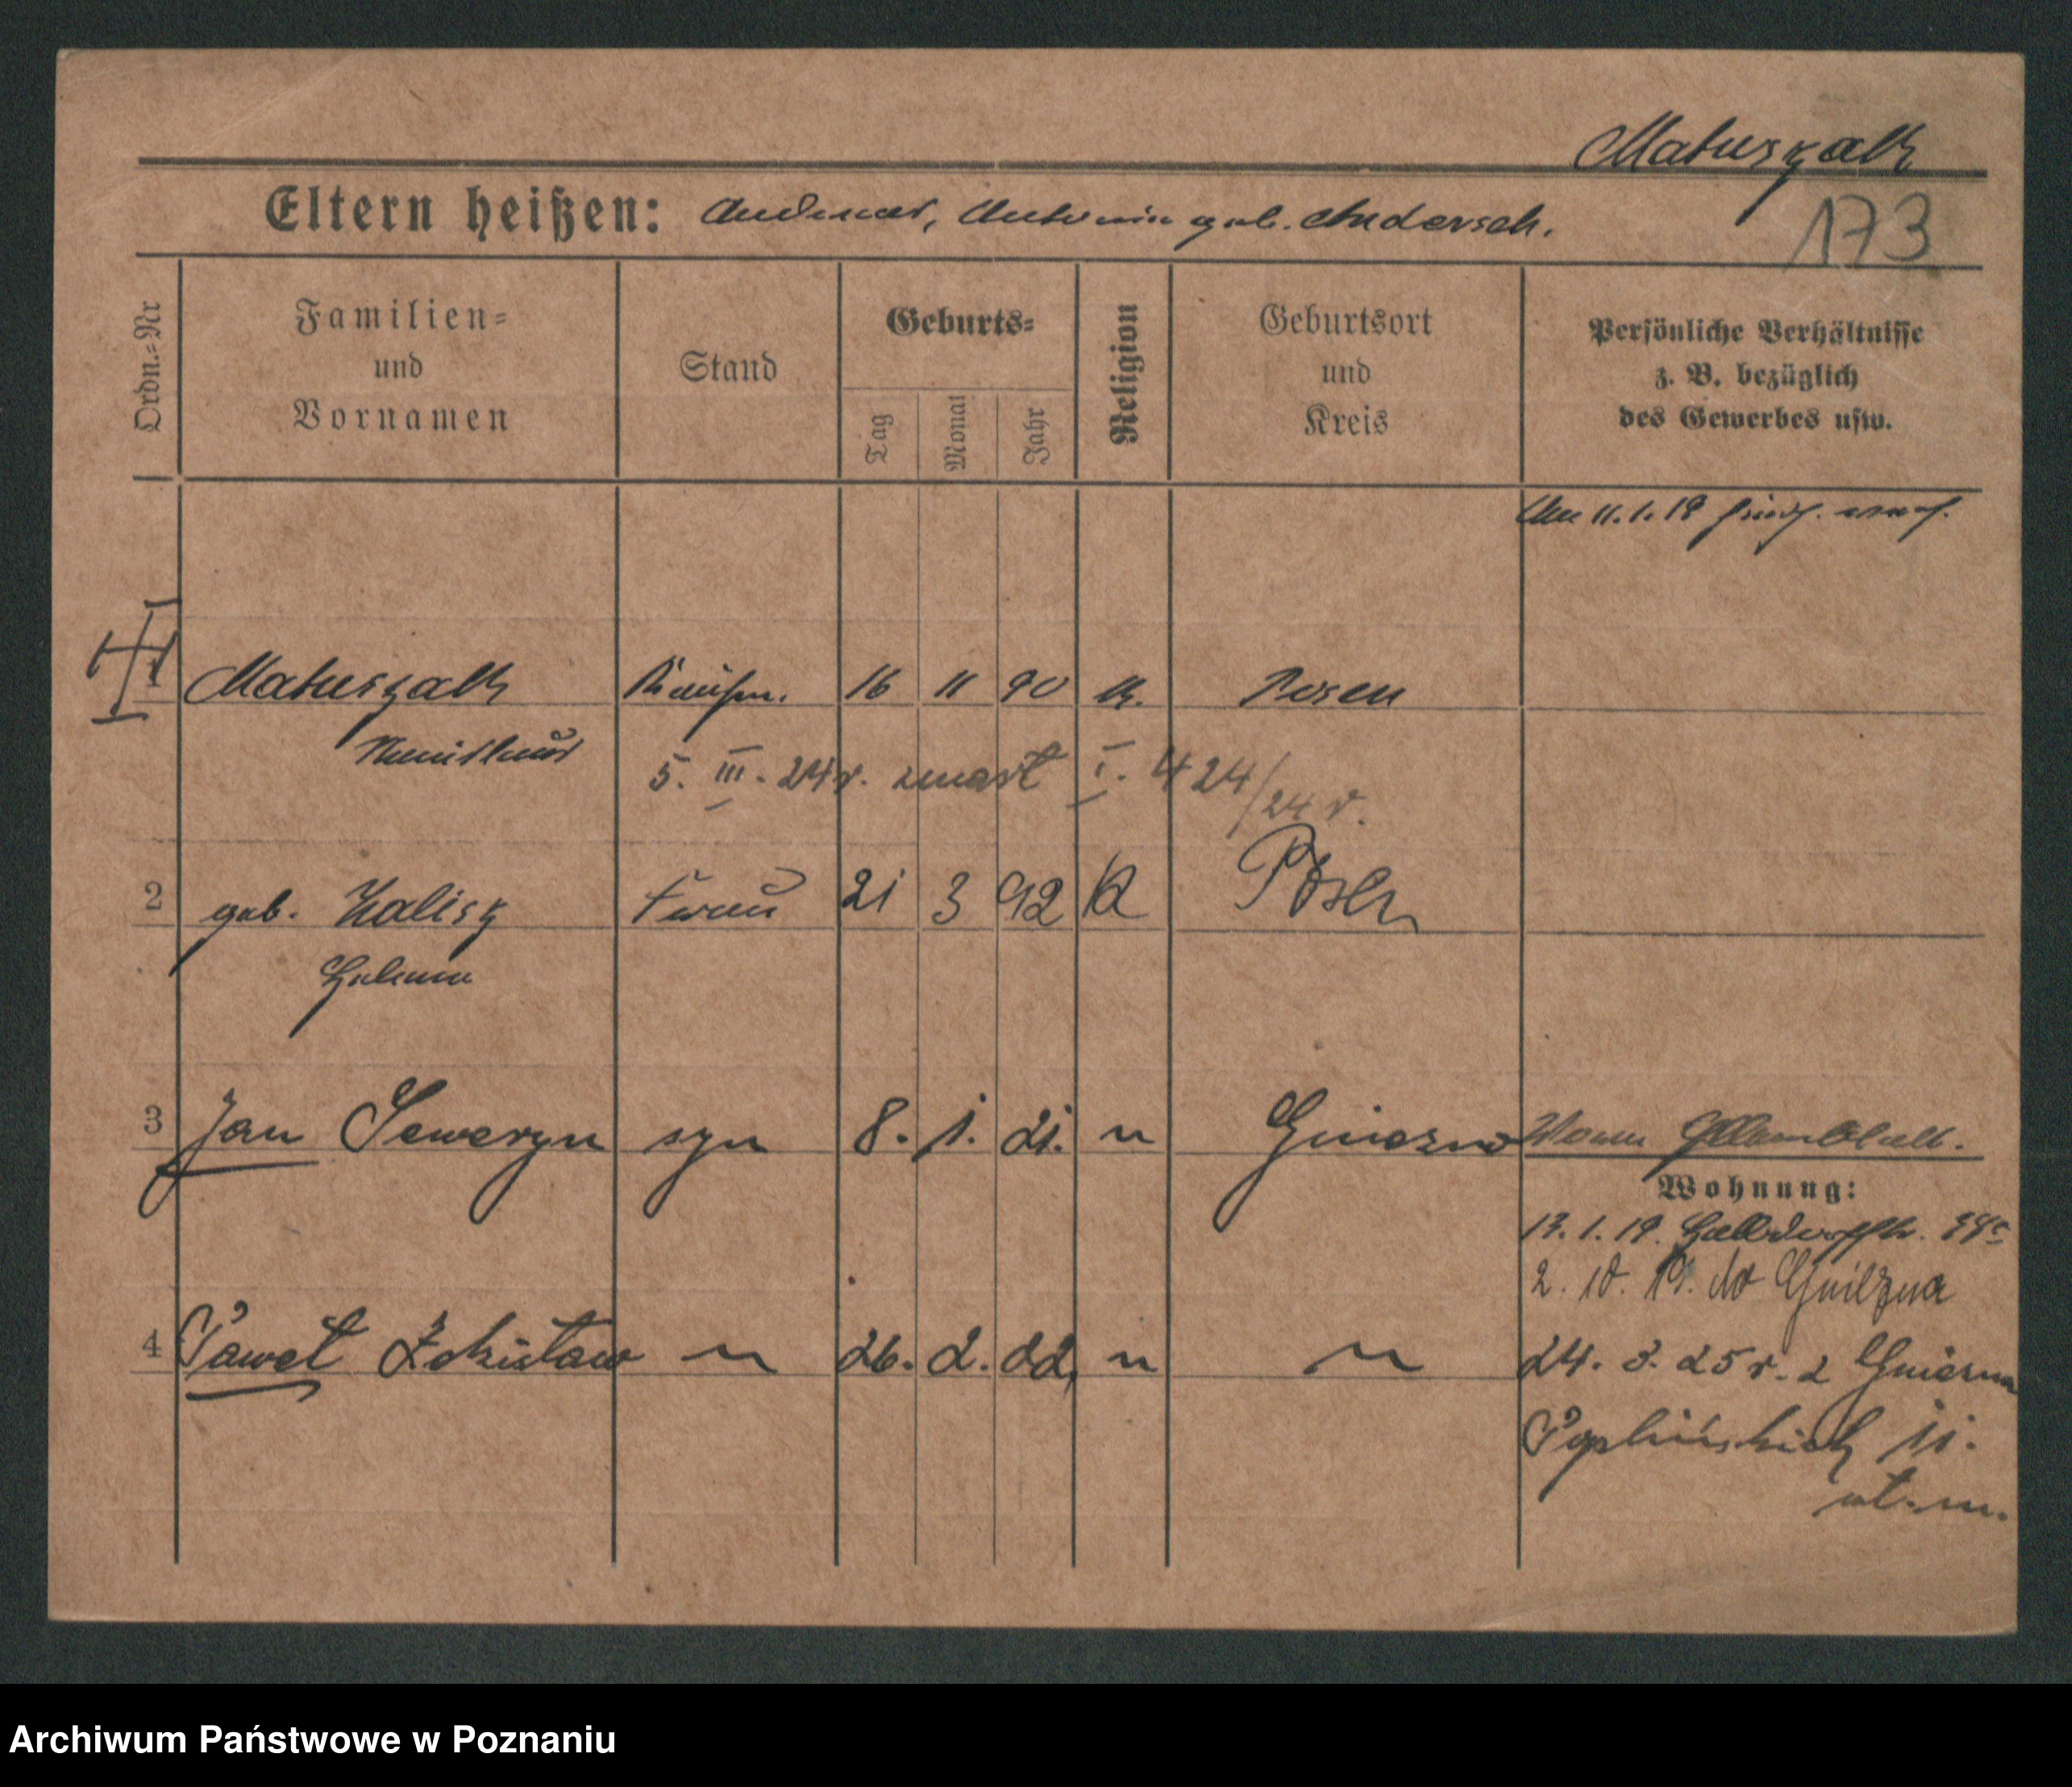 Matuszak
Eltern heißen: Andreas, Antonin geb. Andersch.
173
Ordn.=Nr
Familien=
und
Vornamen
Stand
Geburts=
Tag
Monat
Jahr
Religion
Geburtsort
und
Kreis
Persönliche Verhältnisse
z. B. bezüglich
des Gewerbes usw.
11.1.19
1 Matuszak Kaufm. 16 11 90 K. Posen
Stanislaus
5. III. 24 r. zmarł I. 424/24 r.
2 geb. Kalisz Frau 21 3 92 K Posen
Helena
3 Jan Seweryn syn 8. 1. 21. " Gniezno
Wohnung:
13.1.19.
2. 10. 19. do Gniezna
4 Paweł Zdzisław " 26. 2. 22. " "
24. 3. 25 r. z Gniezna
11.